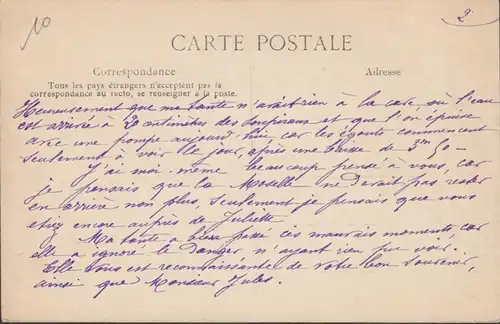 10
2
CARTE POSTALE
Correspondance
Adresse
Tous les pays étrangers n'acceptent pas la
correspondance au recto, se renseigner à la poste.
Heureusement que ma tante n'avait rien à la cave, où l'eau
est arrivée à 20 centimètres des soupiraux et que l'on épuise
avec une pompe aujourd'hui car les égouts commencent
seulement à voir le jour, après une baisse de 3m 50 —
J'ai moi-même beaucoup pensé à vous, car
je pensais que la Moselle ne devait pas rester
en arrière non plus, seulement je pensais que vous
étiez encore auprès de Juliette
Ma tante a bien passé ces mauvais moments, car
elle a ignoré le danger n'ayant rien pu voir.
Elle vous est reconnaissante de votre bon souvenir,
ainsi que Monsieur Jules.